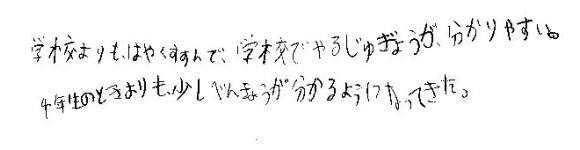 学校よりも、はやくすすんで、学校でやるじゅぎょうが、分かりやすい。
4年生のときよりも、少しべんきょうが分かるようになってきた。